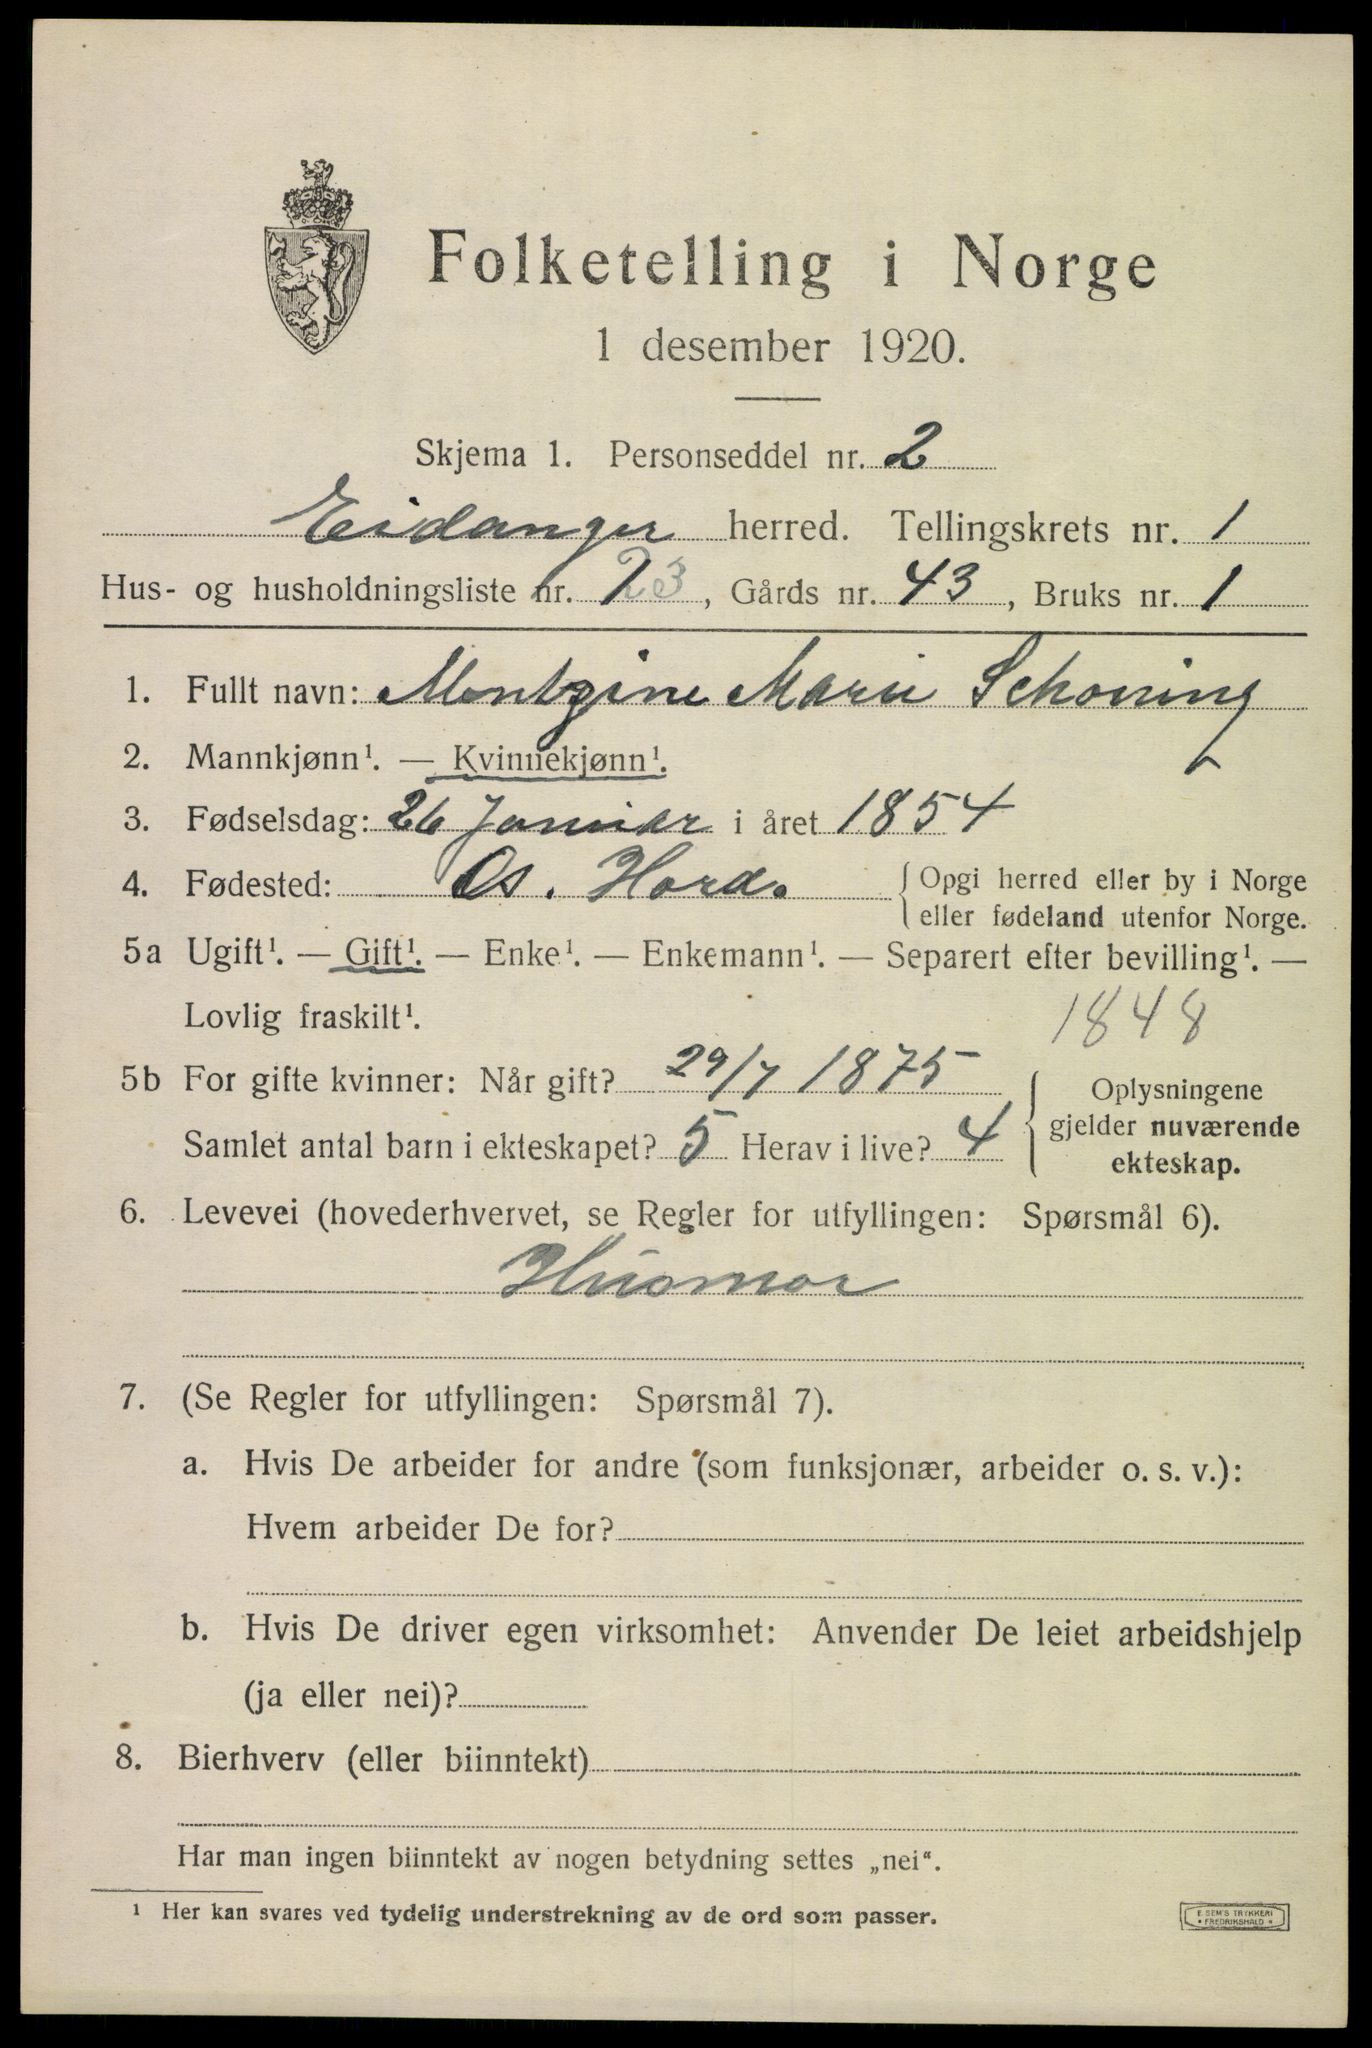 Folketelling i Norge
1 desember 1920.
Skjema 1. Personseddel nr. 2
Eidanger herred. Tellingskrets nr. 1
Hus- og husholdningsliste nr. 23, Gårds nr. 43, Bruks nr. 1
1. Fullt navn: Marie Schoning
2. Mannkjønn¹. — Kvinnekjønn¹.
3. Fødselsdag: 26 Januar i året 1854
4. Fødested: Os. Hord. { Opgi herred eller by i Norge
eller fødeland utenfor Norge.
5a Ugift¹. — Gift¹. — Enke¹. — Enkemann¹. — Separert efter bevilling¹. —
Lovlig fraskilt¹. 1848
5b For gifte kvinner: Når gift? 29/7 1875
Samlet antal barn i ekteskapet? 5 Herav i live? 4
{ Oplysningene
gjelder nuværende
ekteskap.
6. Levevei (hovederhvervet, se Regler for utfyllingen: Spørsmål 6).
Husmor
7. (Se Regler for utfyllingen: Spørsmål 7).
a. Hvis De arbeider for andre (som funksjonær, arbeider o. s. v.):
Hvem arbeider De for?
b. Hvis De driver egen virksomhet: Anvender De leiet arbeidshjelp
(ja eller nei)?
8. Bierhverv (eller biinntekt)
Har man ingen biinntekt av nogen betydning settes „nei“.
¹ Her kan svares ved tydelig understrekning av de ord som passer.
E. SEM'S TRYKKERI
• FREDRIKSHALD •